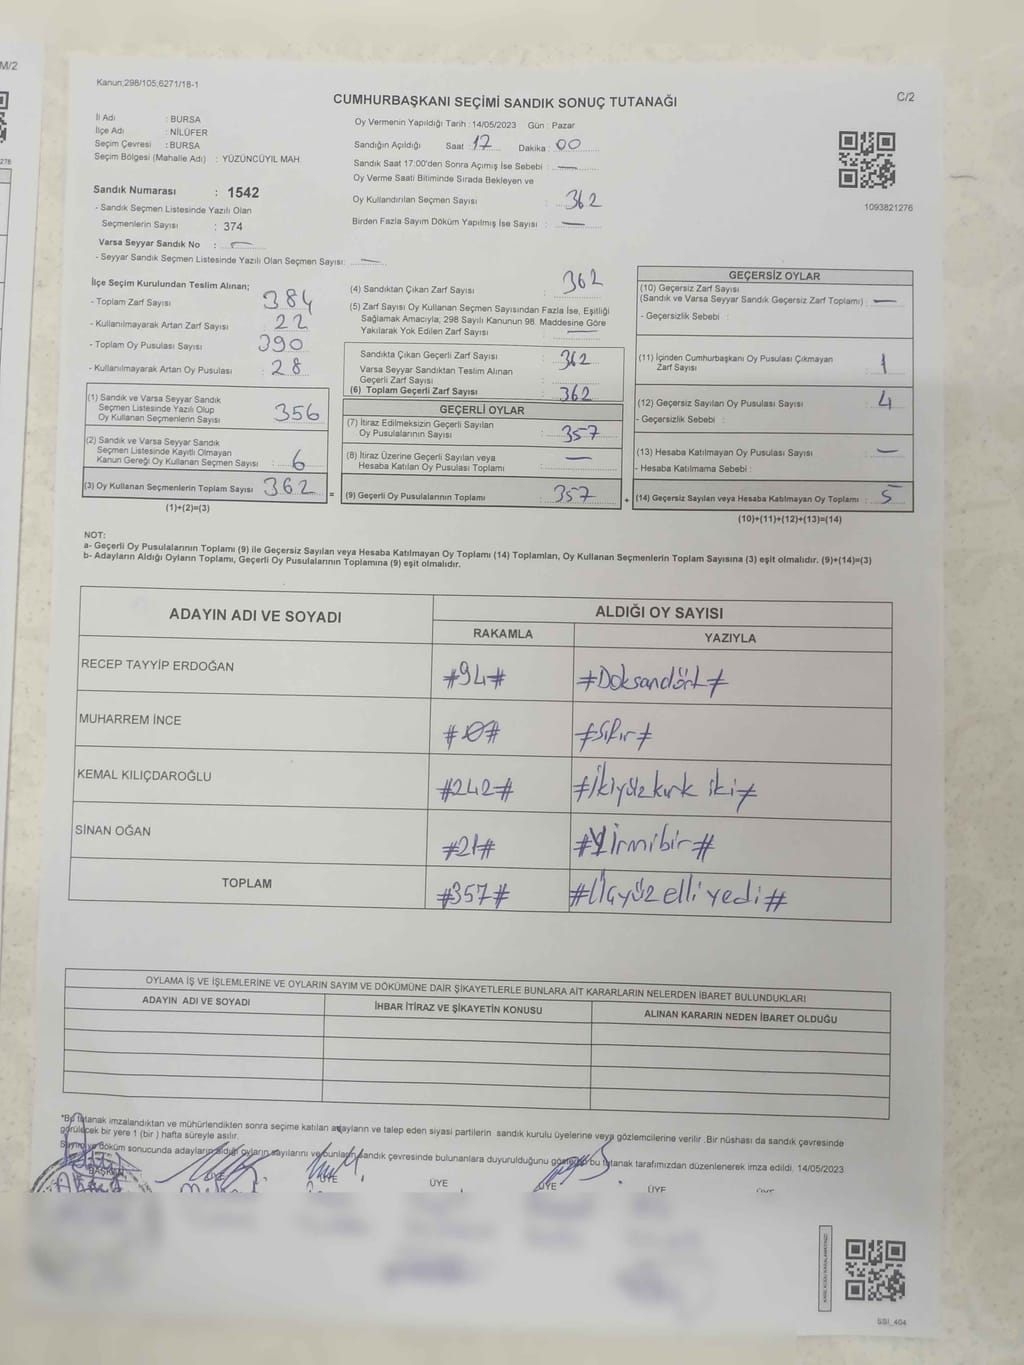 M/2
Kanun:298/105;6271/18-1
CUMHURBAŞKANI SEÇİMİ SANDIK SONUÇ TUTANAĞI
C/2
İl Adı : BURSA
İlçe Adı : NİLÜFER
Seçim Çevresi : BURSA
Seçim Bölgesi (Mahalle Adı) : YÜZÜNCÜYIL MAH.
Sandık Numarası : 1542
- Sandık Seçmen Listesinde Yazılı Olan
Seçmenlerin Sayısı : 374
Varsa Seyyar Sandık No : —
- Seyyar Sandık Seçmen Listesinde Yazılı Olan Seçmen Sayısı: —
Oy Vermenin Yapıldığı Tarih : 14/05/2023 Gün : Pazar
Sandığın Açıldığı Saat : 17 Dakika : 00
Sandık Saat 17:00'den Sonra Açımış İse Sebebi : —
Oy Verme Saati Bitiminde Sırada Bekleyen ve
Oy Kullandırılan Seçmen Sayısı : 362
Birden Fazla Sayım Döküm Yapılmış İse Sayısı : —
1093821276
İlçe Seçim Kurulundan Teslim Alınan;
- Toplam Zarf Sayısı 384
- Kullanılmayarak Artan Zarf Sayısı 22
- Toplam Oy Pusulası Sayısı 390
- Kullanılmayarak Artan Oy Pusulası 28
(1) Sandık ve Varsa Seyyar Sandık
Seçmen Listesinde Yazılı Olup
Oy Kullanan Seçmenlerin Sayısı 356
(2) Sandık ve Varsa Seyyar Sandık
Seçmen Listesinde Kayıtlı Olmayan
Kanun Gereği Oy Kullanan Seçmen Sayısı : 6
(3) Oy Kullanan Seçmenlerin Toplam Sayısı 362
(1)+(2)=(3)
(4) Sandıktan Çıkan Zarf Sayısı : 362
(5) Zarf Sayısı Oy Kullanan Seçmen Sayısından Fazla İse, Eşitliği
Sağlamak Amacıyla, 298 Sayılı Kanunun 98. Maddesine Göre
Yakılarak Yok Edilen Zarf Sayısı : —
Sandıkta Çıkan Geçerli Zarf Sayısı : 362
Varsa Seyyar Sandıktan Teslim Alınan
Geçerli Zarf Sayısı :
(6) Toplam Geçerli Zarf Sayısı : 362
GEÇERLİ OYLAR
(7) İtiraz Edilmeksizin Geçerli Sayılan
Oy Pusulalarının Sayısı : 357
(8) İtiraz Üzerine Geçerli Sayılan veya
Hesaba Katılan Oy Pusulası Toplamı : —
= (9) Geçerli Oy Pusulalarının Toplamı : 357 +
GEÇERSİZ OYLAR
(10) Geçersiz Zarf Sayısı
(Sandık ve Varsa Seyyar Sandık Geçersiz Zarf Toplamı) : —
- Geçersizlik Sebebi :
(11) İçinden Cumhurbaşkanı Oy Pusulası Çıkmayan
Zarf Sayısı : 1
(12) Geçersiz Sayılan Oy Pusulası Sayısı : 4
- Geçersizlik Sebebi :
(13) Hesaba Katılmayan Oy Pusulası Sayısı : —
- Hesaba Katılmama Sebebi :
(14) Geçersiz Sayılan veya Hesaba Katılmayan Oy Toplamı : 5
(10)+(11)+(12)+(13)=(14)
NOT:
a- Geçerli Oy Pusulalarının Toplamı (9) ile Geçersiz Sayılan veya Hesaba Katılmayan Oy Toplamı (14) Toplamları, Oy Kullanan Seçmenlerin Toplam Sayısına (3) eşit olmalıdır. (9)+(14)=(3)
b- Adayların Aldığı Oyların Toplamı, Geçerli Oy Pusulalarının Toplamına (9) eşit olmalıdır.
ADAYIN ADI VE SOYADI ALDIĞI OY SAYISI
RAKAMLA YAZIYLA
RECEP TAYYİP ERDOĞAN #94# #Doksandört#
MUHARREM İNCE #0# #Sıfır#
KEMAL KILIÇDAROĞLU #242# #İkiyüzkırk iki#
SİNAN OĞAN #21# #Yirmibir#
TOPLAM #357# #Üçyüz elli yedi#
OYLAMA İŞ VE İŞLEMLERİNE VE OYLARIN SAYIM VE DÖKÜMÜNE DAİR ŞİKAYETLERLE BUNLARA AİT KARARLARIN NELERDEN İBARET BULUNDUKLARI
ADAYIN ADI VE SOYADI İHBAR İTİRAZ VE ŞİKAYETİN KONUSU ALINAN KARARIN NEDEN İBARET OLDUĞU
*Bu tutanak imzalandıktan ve mühürlendikten sonra seçime katılan adayların ve talep eden siyasi partilerin sandık kurulu üyelerine veya gözlemcilerine verilir .Bir nüshası da sandık çevresinde
görülecek bir yere 1 (bir ) hafta süreyle asılır.
Sayım ve döküm sonucunda adayların aldığı oyların sayılarını ve bunların sandık çevresinde bulunanlara duyurulduğunu gösterir bu tutanak tarafımızdan düzenlenerek imza edildi. 14/05/2023
BAŞKAN ÜYE ÜYE ÜYE ÜYE ÜYE
SSI_404